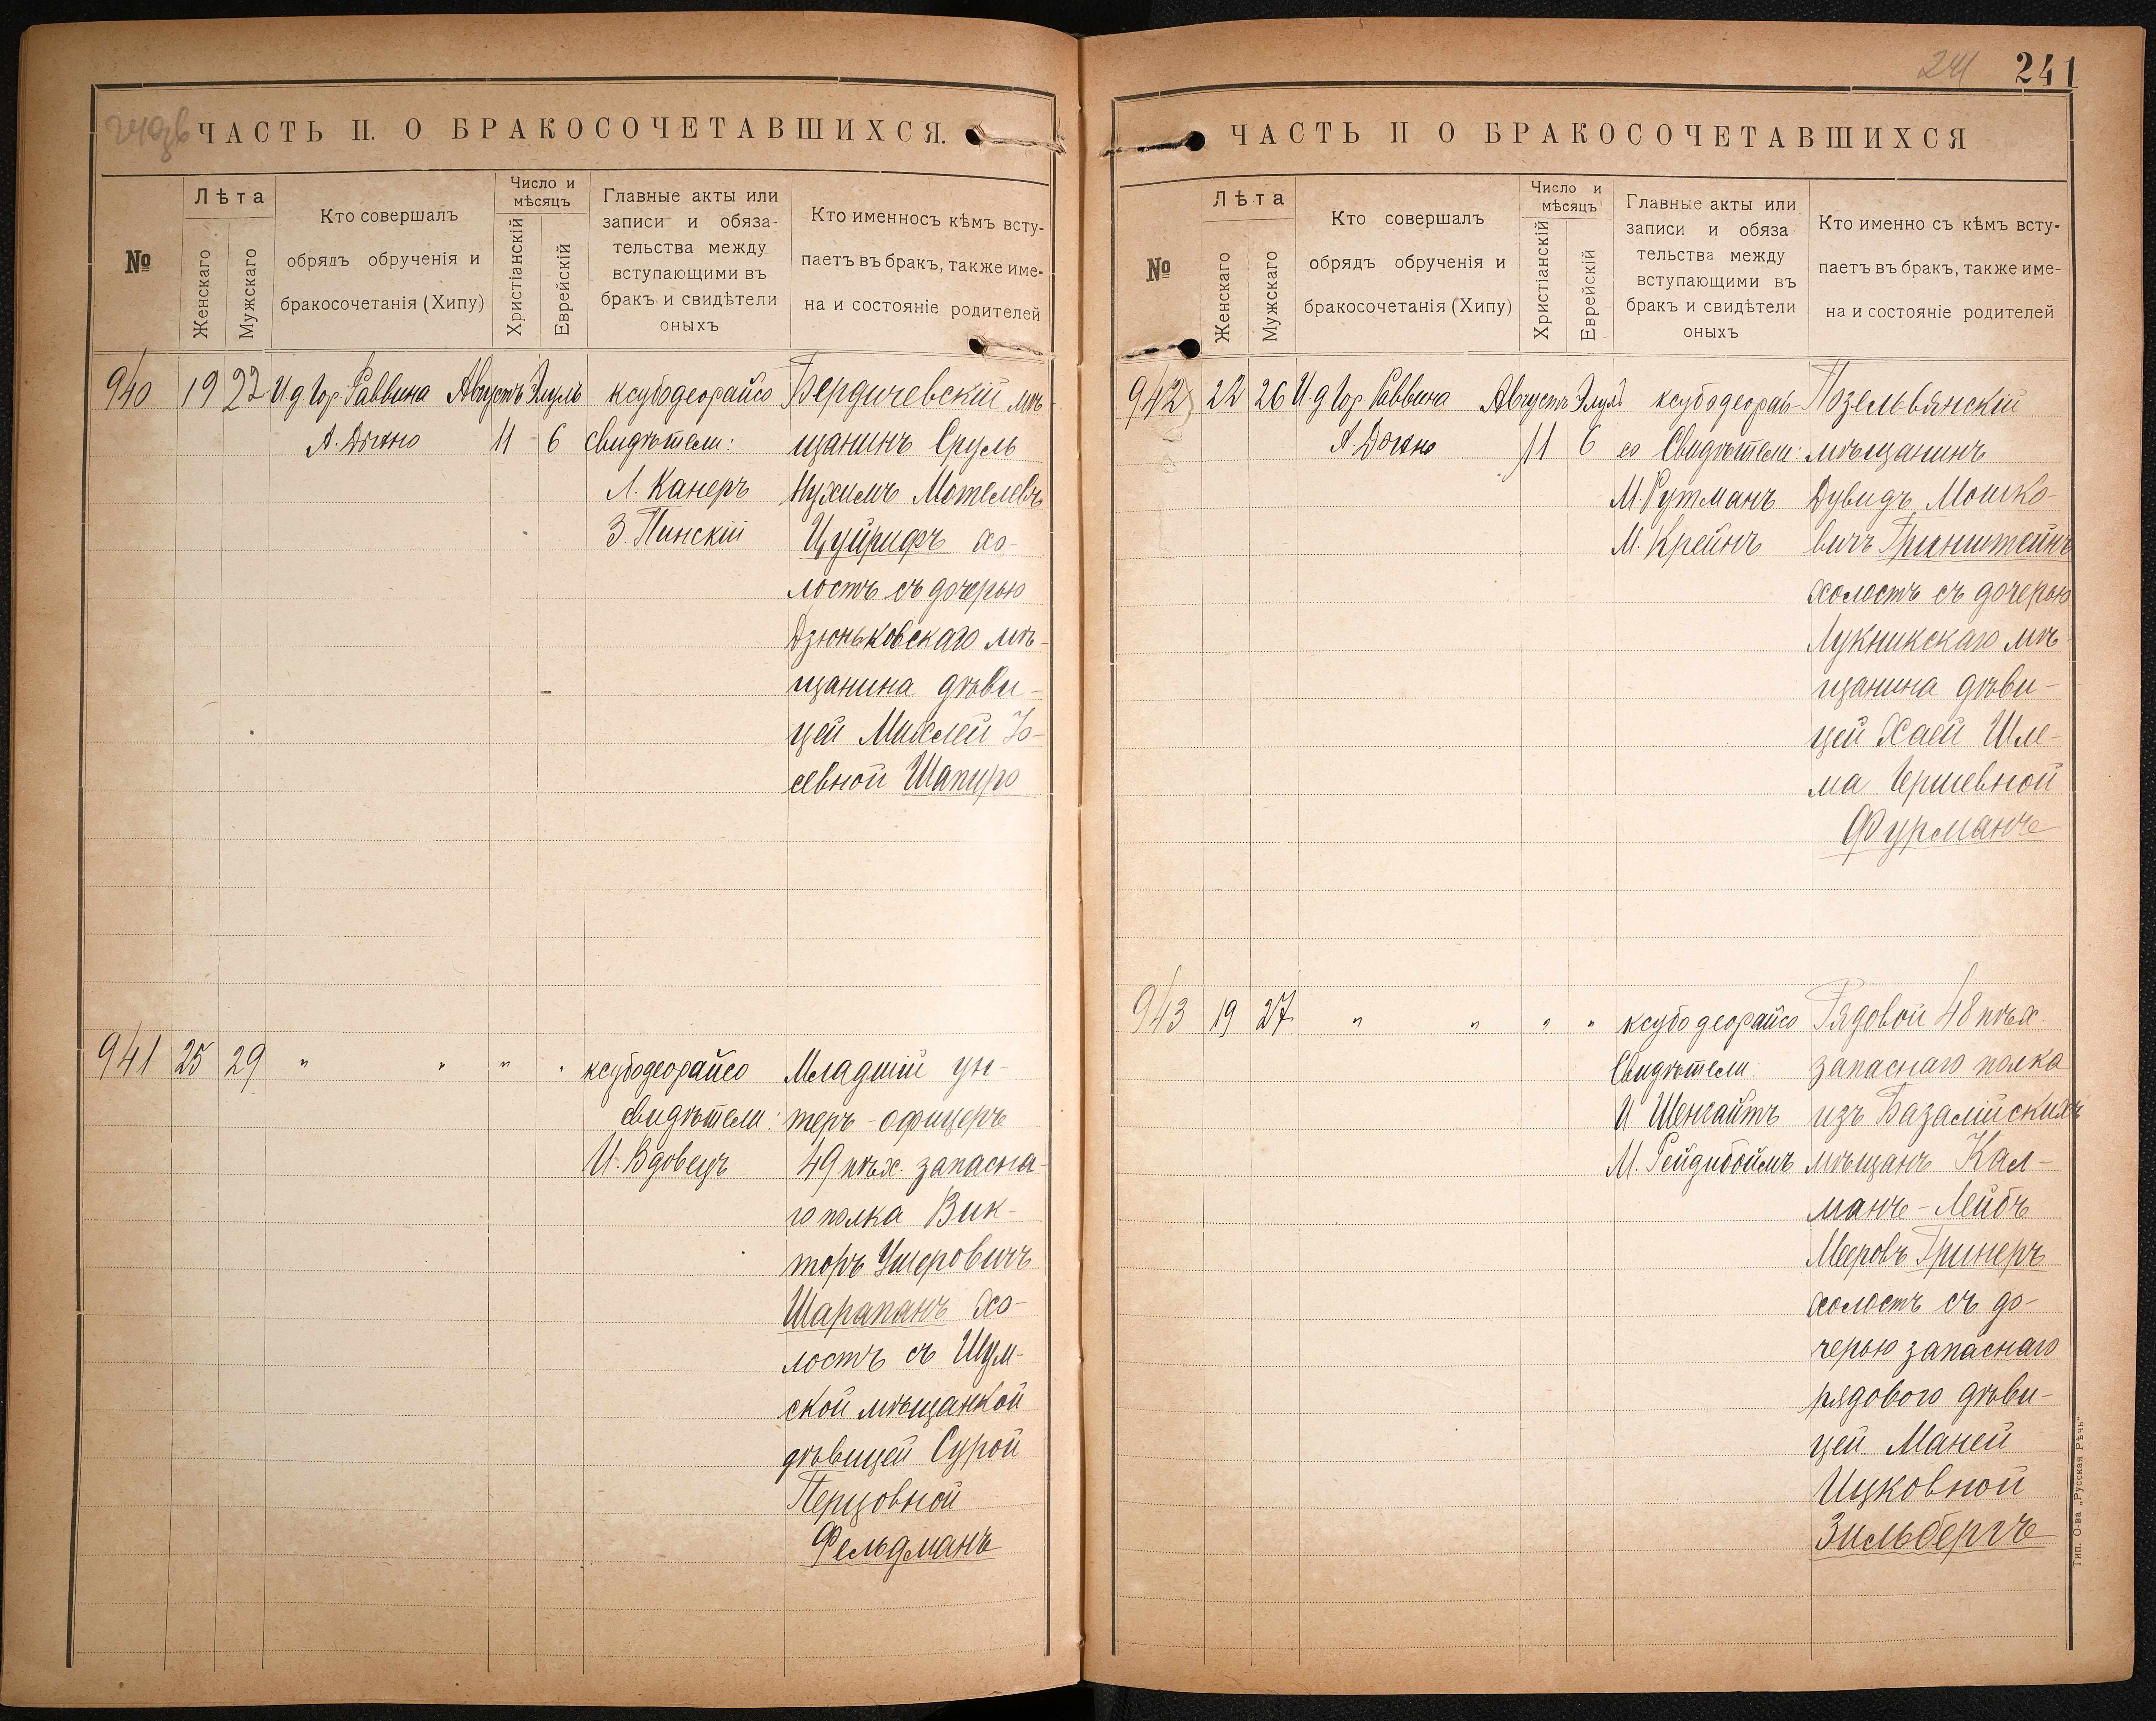 ЧАСТЬ II. О БРАКОСОЧЕТАВШИХСЯ.
№
Лѣта
Женскаго
Мужскаго
Кто совершалъ
обрядъ обрученія и
бракосочетанія (Хипу)
Число и
мѣсяцъ
Христіанскій
Еврейскій
Главные акты или
записи и обяза-
тельства между
вступающими въ
бракъ и свидѣтели
оныхъ
Кто именносъ кѣмъ всту-
паетъ въ бракъ, также име-
на и состояніе родителей
940 19 22 И д Гор. Раввина Августъ Элулъ ксубодеорайсо Бердичевскій мѣ-
11 6 свидѣтели: щанинъ Сруль
Л. Канеръ Нухимъ Мотелевъ
З. Пинскій хо-
лостъ съ дочерью
Дзюньковскаго мѣ-
щанина дѣви-
цей Михлей Іо-
севной Шапиро
941 25 29 " " " " ксубодеорайсо Младшій ун-
свидѣтели: теръ-офицеръ
И. Вдовецъ 49 пѣх. запасна-
го полка Вик-
торъ Ушеровичъ
Шарапанъ хо-
лостъ съ Шум-
ской мѣщанкой
дѣвицей Сурой
Перцовной
Фельдманъ
241
241
ЧАСТЬ II О БРАКОСОЧЕТАВШИХСЯ
№
Лѣта
Женскаго
Мужскаго
Кто совершалъ
обрядъ обрученія и
бракосочетанія (Хипу)
Число и
мѣсяцъ
Христіанскій
Еврейскій
Главные акты или
записи и обяза
тельства между
вступающими въ
бракъ и свидѣтели
оныхъ
Кто именно съ кѣмъ всту-
паетъ въ бракъ, также име-
на и состояніе родителей
942 22 26 И. д Гор Раввина Августъ Элулъ ксубодеорай- Позельвянскій
11 6 со Свидѣтели: мѣщанинъ
М. Рутманъ Дувидъ Мошко-
М. Крейнъ вичъ Гринштейнъ
холостъ съ дочерью
Лукникскаго мѣ
щанина дѣви-
цей Хаей Шле-
ма Гершевной
Фурманъ
943 19 27 " " " " ксубодеорайсо Рядовой 48 пѣх.
Свидѣтели запаснаго полка
И Шенгайтъ изъ Базалійскихъ
М. Рейдибоймъ мѣщанъ Кал-
манъ-Лейбъ
Мееровъ Гринеръ
холостъ съ до-
черью запаснаго
рядового дѣви-
цей Маней
Ицковной
Зильбергъ
Тип. О-ва „Русская Рѣчь"